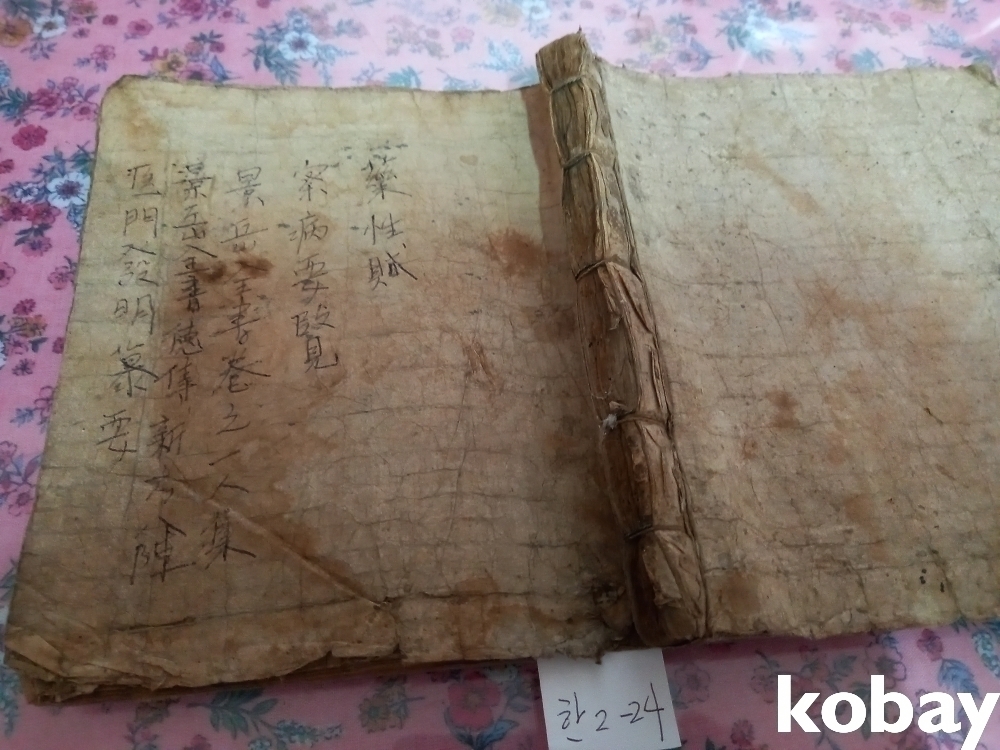 藥性賦
察病要覽
景岳全書卷之一人集
景岳全書德集新方八陣
医門發明
要
한2-24
kobay